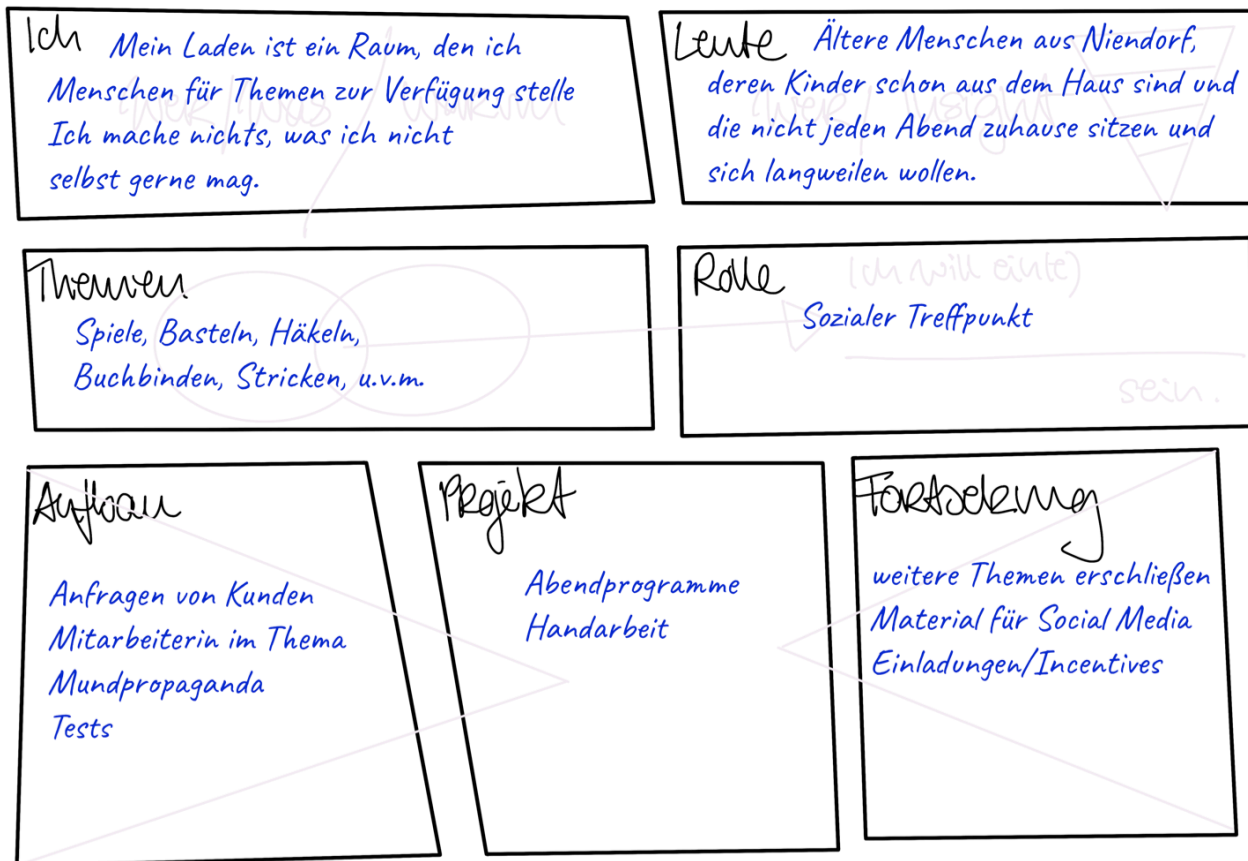 Ich
Mein Laden ist ein Raum, den ich
Menschen für Themen zur Verfügung stelle
Ich mache nichts, was ich nicht
selbst gerne mag.
wer/was / warum
Leute
Ältere Menschen aus Niendorf,
deren Kinder schon aus dem Haus sind und
die nicht jeden Abend zuhause sitzen und
sich langweilen wollen.
wer / Insight
Themen
Spiele, Basteln, Häkeln,
Buchbinden, Stricken, u.v.m.
Rolle
(Ich will ein(e)
Sozialer Treffpunkt
sein.
Aufbau
Anfragen von Kunden
Mitarbeiterin im Thema
Mundpropaganda
Tests
Projekt
Abendprogramme
Handarbeit
Fortsetzung
weitere Themen erschließen
Material für Social Media
Einladungen/Incentives